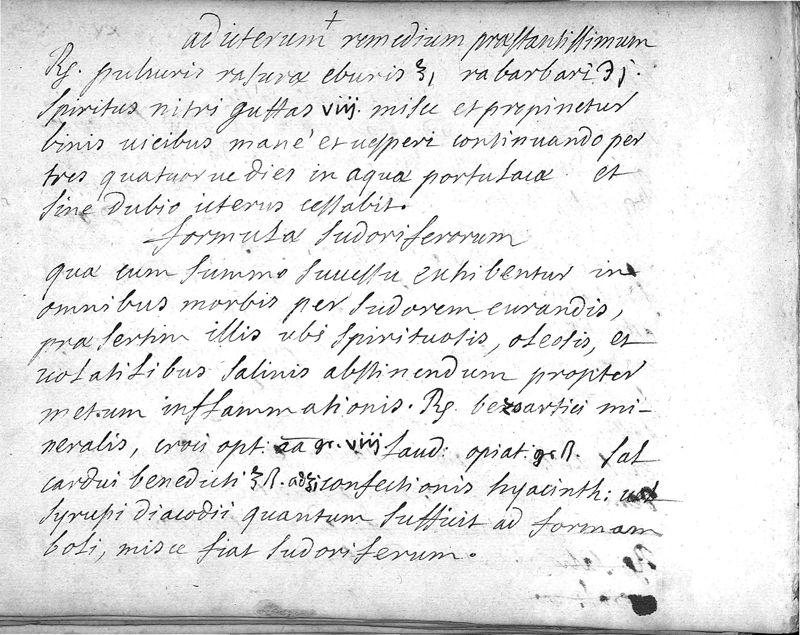 ad icterum † remedium præstantissimum
℞. pulveris rasuræ eburis ʒ1 rabarbari ℈j.
spiritus nitri guttas viij. misce et propinetur
binis vicibus mane et vesperi continuando per
tres quatuor ve dies in aqua portulacæ et
sine dubio icterus cessabit.
formulæ sudoriferorum
quæ cum summo successu exhibentur in
omnibus morbis per sudorem curandis,
præsertim illis ubi spirituosis, oleosis, et
volatilibus salinis abstinendum propter
metum inflammationis. ℞. bezoartici mi-
neralis, croci opt. aa gr. viij laud: opiat. gr ß. sal
cardui benedicti ʒ ß. confectionis hyacinth:
syrupi diacodii quantum sufficit ad formam
boli, misce fiat sudoriferum.